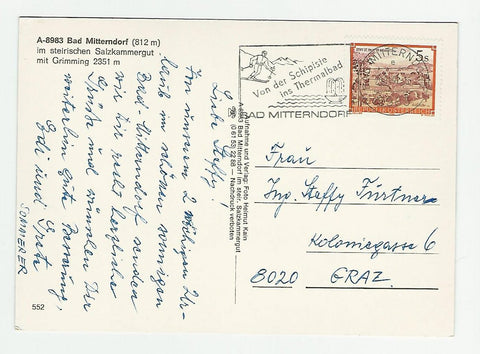 A-8983 Bad Mitterndorf (812 m)
im steirischen Salzkammergut
mit Grimming 2351 m
Liebe Steffy!
Von unserem 2 wöchigen Ur-
laub im schönen sonnigen
Bad-Mitterndorf senden
wir Dir recht herzliche
Grüße und wünschen Dir
weiterhin gute Besserung!
Edi und Grete
SOMMERER
552
Aufnahme und Verlag: Foto Helmut Kain
A-8983 Bad Mitterndorf im steir. Salzkammergut
(0 61 53) 22 88 — Nachdruck verboten
Von der Schipiste
ins Thermalbad
BAD MITTERNDORF
5 S
REPUBLIK ÖSTERREICH
Frau
Ing. Steffy Fürtner
Koloniegasse 6
8020 GRAZ.